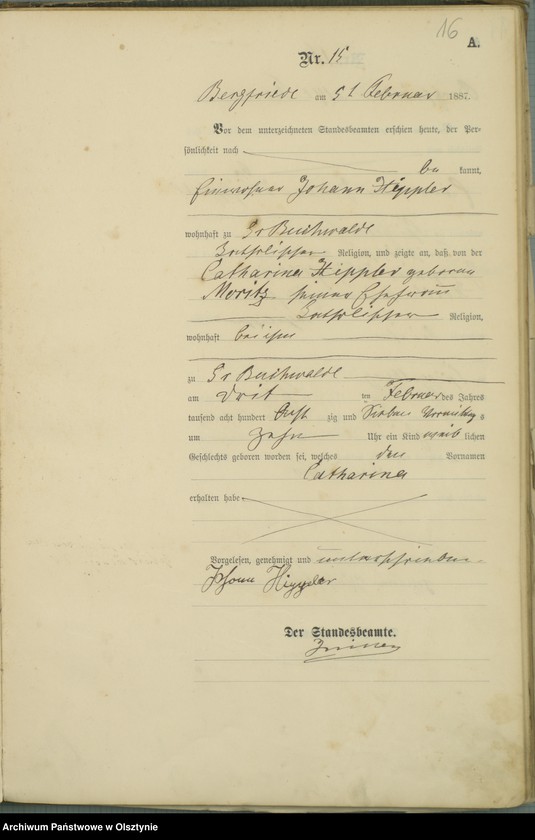 16
A.
Nr. 15
Bergfriede am 5 t Februar 1887.
Vor dem unterzeichneten Standesbeamten erschien heute, der Per-
sönlichkeit nach
be kannt,
Einwohner Johann Hippler
wohnhaft zu Gr Buchwalde
katholischer Religion, und zeigte an, daß von der
Catharina Hippler geboren
Moritz seiner Ehefrau
katholischer Religion,
wohnhaft bei ihm
zu Gr Buchwalde
am drit ten Februar des Jahres
tausend acht hundert acht zig und sieben Vormittag s
um zehn Uhr ein Kind weib lichen
Geschlechts geboren worden sei, welches den Vornamen
Catharina
erhalten habe
Vorgelesen, genehmigt und unterschrieben
Johann Hippler
Der Standesbeamte.
Archiwum Państwowe w Olsztynie